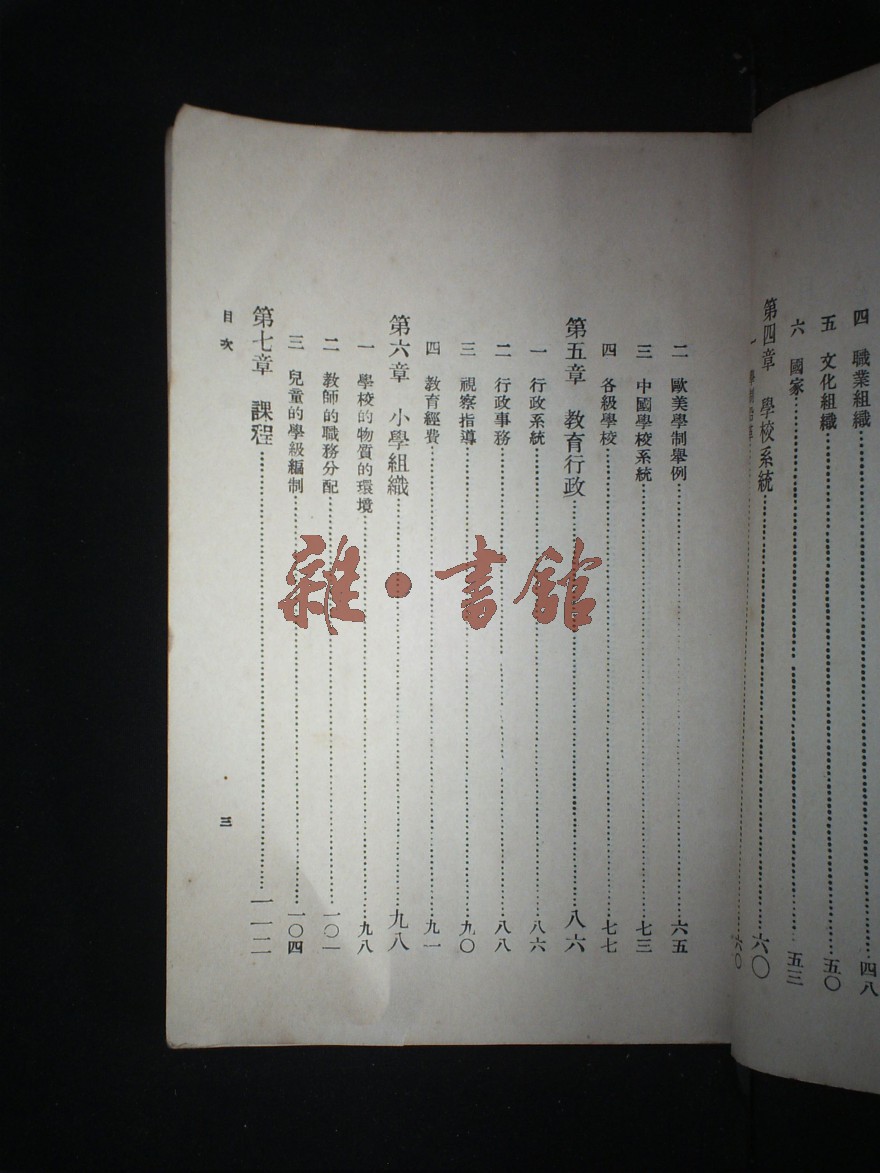 四 職業組織 四八
五 文化組織 五〇
六 國家 五三
第四章 學校系統 六〇
一 六〇
二 歐美學制舉例 六五
三 中國學校系統 七三
四 各級學校 七七
第五章 教育行政 八六
一 行政系統 八六
二 行政事務 八八
三 視察指導 九〇
四 教育經費 九一
第六章 小學組織 九八
一 學校的物質的環境 九八
二 教師的職務分配 一〇一
三 兒童的學級編制 一〇四
第七章 課程 一一二
目次 三
雜·書館